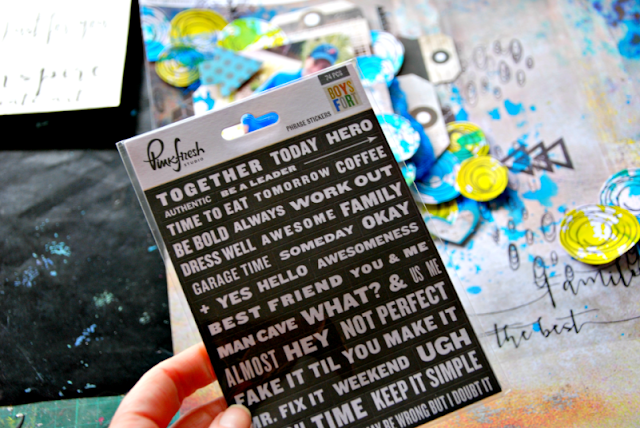 just for you
inspire
Pinkfresh
STUDIO
PHRASE STICKERS
74 PCS
BOYS
FORT
TOGETHER TODAY HERO
AUTHENTIC BE A LEADER
TIME TO EAT TOMORROW COFFEE
BE BOLD ALWAYS WORK OUT
DRESS WELL AWESOME FAMILY
GARAGE TIME SOMEDAY OKAY
+ YES HELLO AWESOMENESS
BEST FRIEND YOU & ME
MAN CAVE WHAT? & US ME
ALMOST HEY NOT PERFECT
FAKE IT TIL YOU MAKE IT
MR. FIX IT WEEKEND UGH
TIME KEEP IT SIMPLE
BE WRONG BUT I DOUBT IT
family
the best